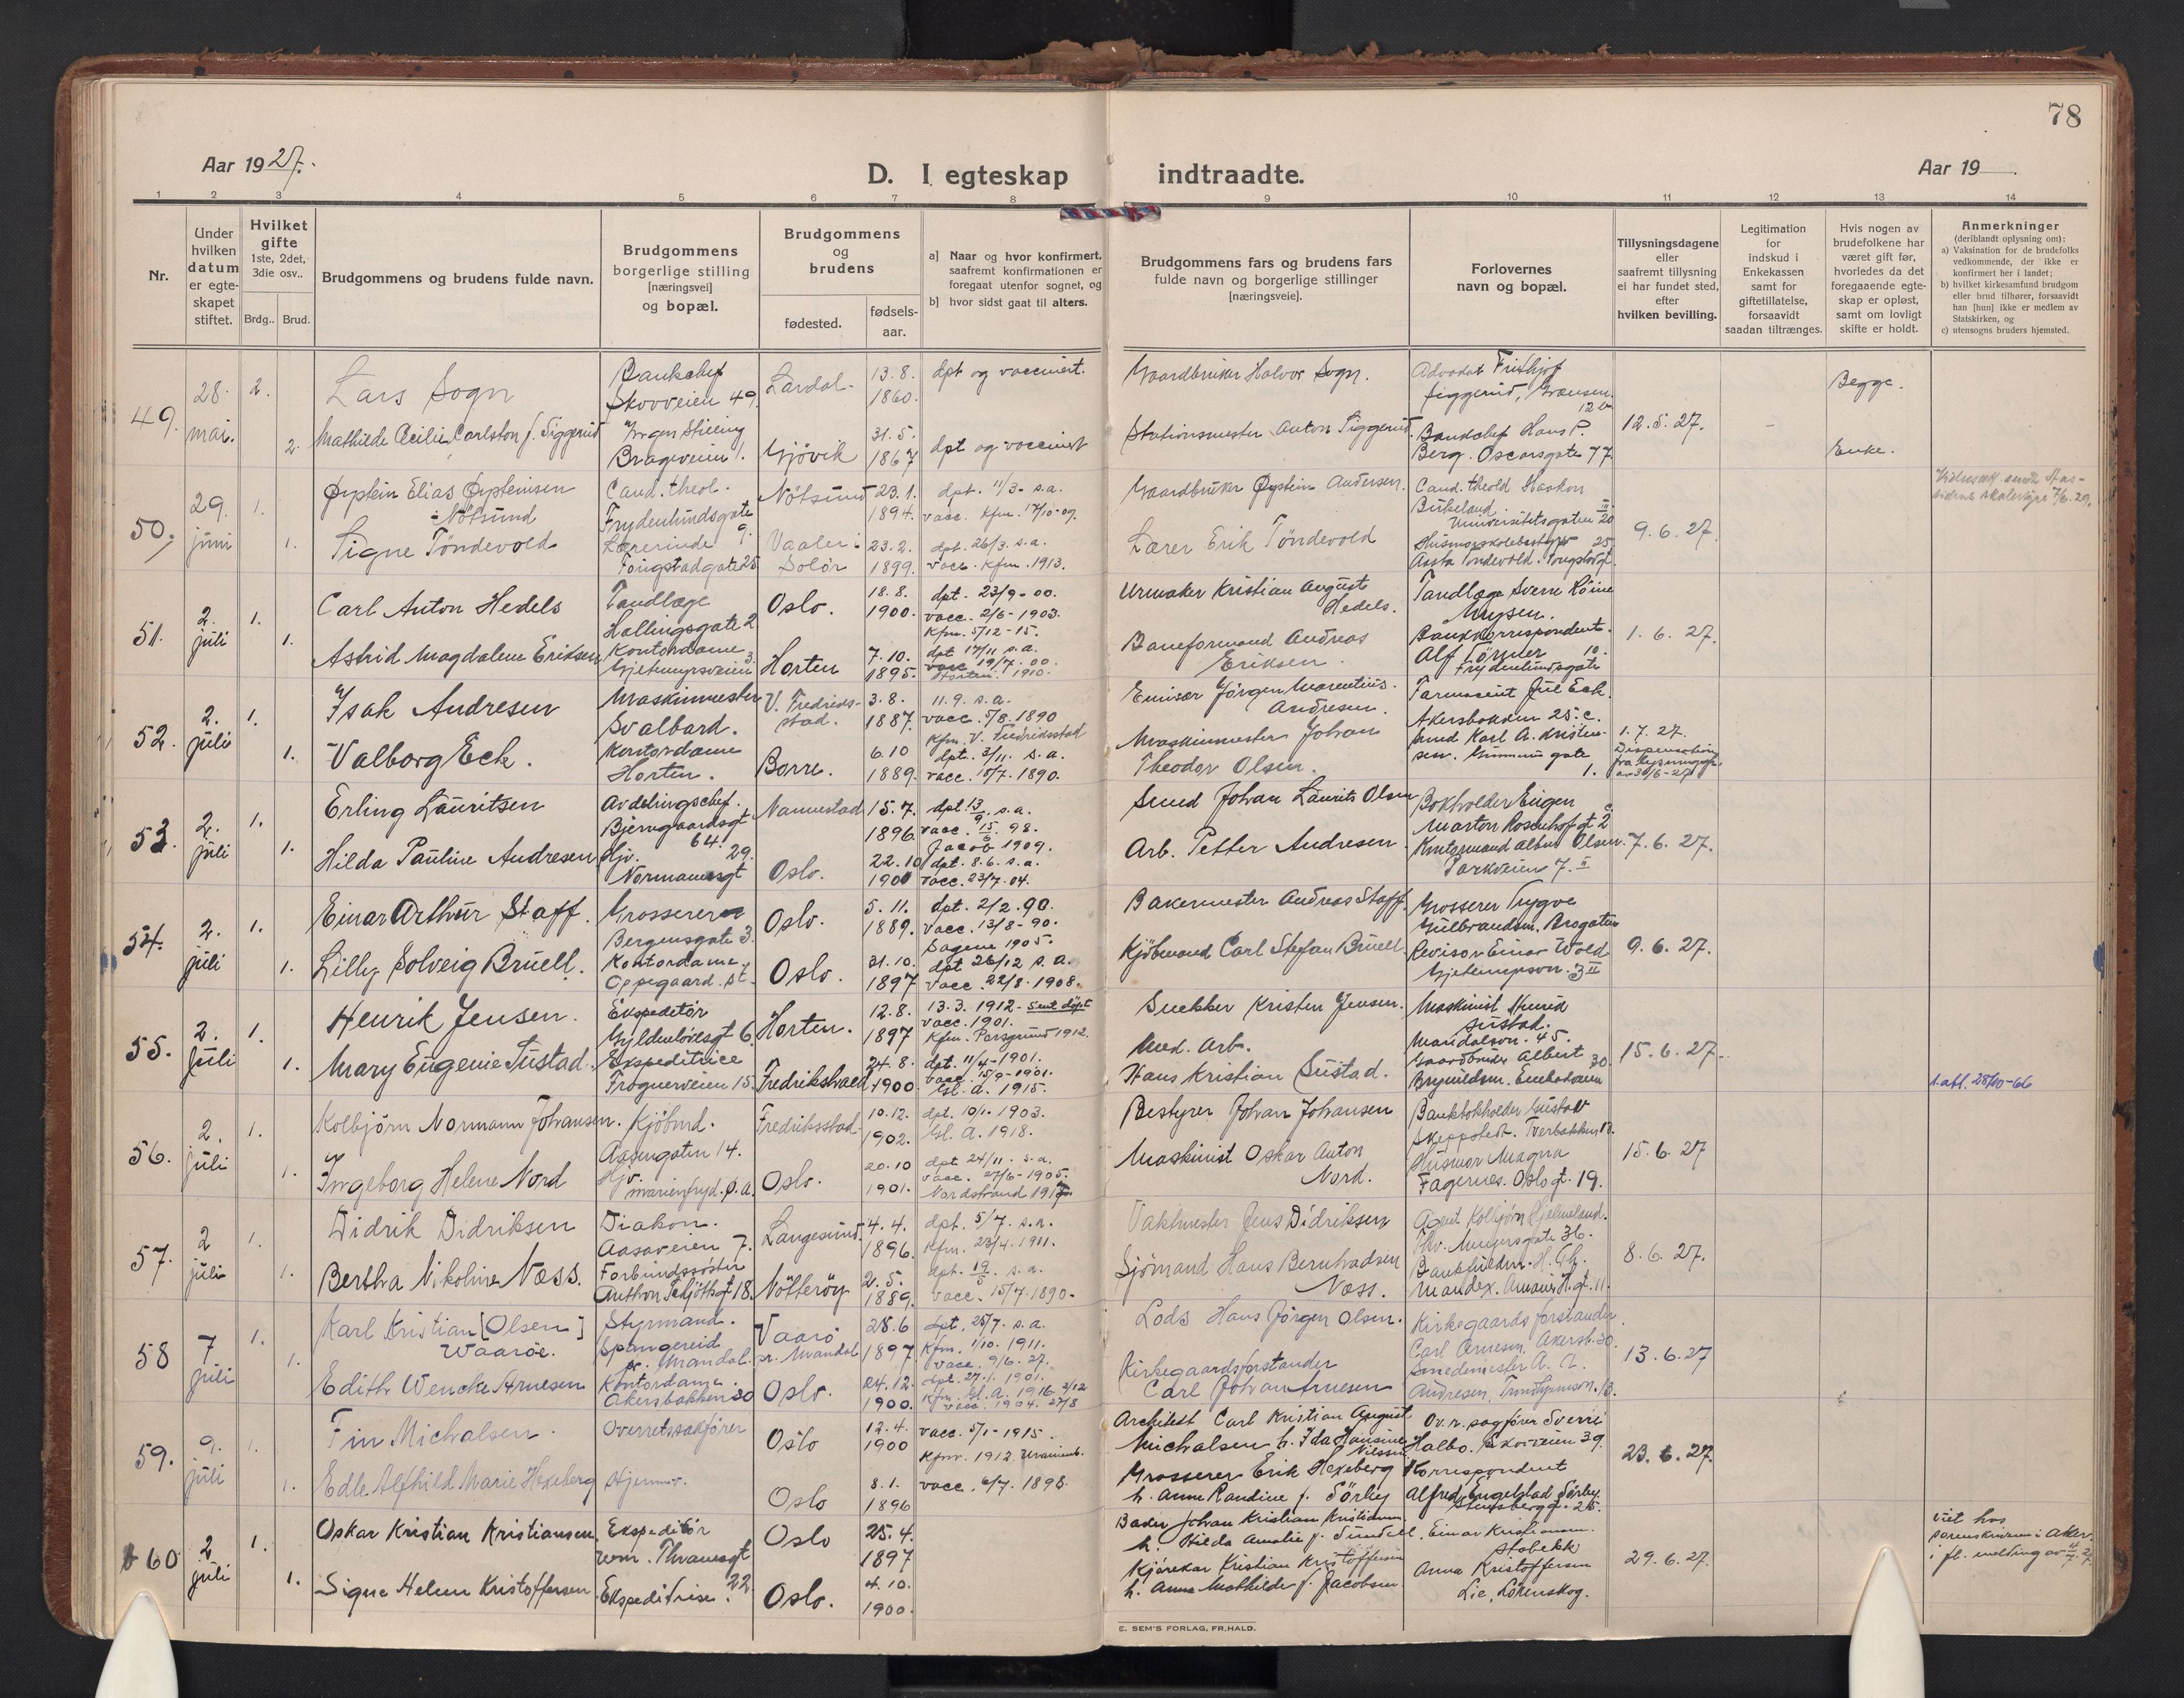 78
Aar 1927.
D. I egteskap indtraadte.
Aar 19
1 2 3 4 5 6 7 8 9 10 11 12 13 14
Nr.
Under hvilken datum er egteskapet stiftet.
Hvilket gifte 1ste, 2det, 3die osv..
Brdg.. Brud.
Brudgommens og brudens fulde navn.
Brudgommens borgerlige stilling [næringsvei] og bopæl.
Brudgommens og brudens
fødested.
fødselsaar.
a] Naar og hvor konfirmert, saafremt konfirmationen er foregaat utenfor sognet, og
b] hvor sidst gaat til alters.
Brudgommens fars og brudens fars fulde navn og borgerlige stillinger [næringsveie].
Forlovernes navn og bopæl.
Tillysningsdagene eller saafremt tillysning ei har fundet sted, efter hvilken bevilling.
Legitimation for indskud i Enkekassen samt for giftetillatelse, forsaavidt saadan tiltrænges.
Hvis nogen av brudefolkene har været gift før, hvorledes da det foregaaende egteskap er opløst, samt om lovligt skifte er holdt.
Anmerkninger
(deriblandt oplysning om):
a) Vaksination for de brudefolks vedkommende, der ikke er konfirmert her i landet;
b) hvilket kirkesamfund brudgom eller brud tilhører, forsaavidt han [hun] ikke er medlem av Statskirken, og
c) utensogns bruders hjemsted.
49. 28. mai. 2.
Lars Sogn
Bankchef Skovveien 49.
Lardal
13.8. 1860.
dpt og vaccinert.
Gaardbruker Halvor Sogn.
Advokat Frithjof Siggerud, Grænsen 12
12.5.27.
Begge.
2. Mathilde Cecilie Carlston f. Siggerud
Ingen Stilling Brageveien 1.
Gjøvik
31.5. 1867
dpt og vaccinert
Stationsmester Anton Siggerud.
Bankchef Hans P. Berg. Oscarsgate 77.
Enke.
50. 29. juni 1.
Øystein Elias Øysteinsen Nötsund
Cand. theol. Frydenlundsgate 9.
Nötsund
23.1. 1894.
dpt. 11/3- s.a.
vacc. Kfm. 17/10-09.
Gaardbruker Øystein Andersen.
Cand. theol Haakon
Universitetsgaten 20
9.6.27.
1. Signe Töndevold
Lærerinde Tougstadgate 25
Vaaler i Solör
23.2. 1899.
dpt. 26/3. s.a.
vacc. Kfm. 1913.
Lærer Erik Töndevold
Aasta Töndevold.
51. 2. juli 1.
Carl Anton Hedels
Tandlæge Hallingsgate 2
Oslo.
18.8. 1900.
dpt. 23/9-00.
vacc. 2/6-1903.
Kfm. 5/12-15.
Urmaker Kristian August Hedels.
Tandlæge Sverre Röine Mysen.
1.6.27.
1. Astrid Magdalene Eriksen
Kontordame Gjetemyrsveien 3.
Horten
7.10. 1895.
dpt 17/11 s.a.
vacc 19/7.00.
Horten. 1910.
Baneformand Andreas Eriksen.
Bankkorrespondent. Alf Törner 10. Frydenlundsgate
52. 2. juli 1.
Isak Andresen
Maskinmester Svalbard.
V. Fredriksstad.
3.8. 1887.
11.9. s.a.
vacc. 5/8.1890
Kfm. V. Fredriksstad
Emissær Jörgen Marentius Andresen.
Farmaceut Jul Eck. Akersbakken 25.c.
1.7.27.
Dispensation fra lysning av 30/6-27
1. Valborg Eck.
Kontordame Horten.
Borre.
6.10 1889.
dpt. 3/11. s.a.
vacc. 10/7.1890.
Maskinmester Johan Theodor Olsen.
Smed Karl A. Kristensen. gate 1.
53. 2. juli 1.
Erling Lauritsen
Avdelingschef. Bjerregaardsgt 64.
Nannestad
15.7. 1896
dpt. 13/9. s.a.
vacc. 15/6 98.
Jacob 1909.
Smed Johan Laurits Olsen
Bokholder Eugen Marton Rosenhofgt 2
7.6.27.
1. Hilda Pauline Andresen
Hjv. Normannsgt 29.
Oslo.
22.10 1900
dpt. 8.6. s.a.
vacc. 23/7.04.
Arb. Petter Andresen
Kontormand Albin Olsen. Parkveien 7. II
54. 2. juli 1.
Einar Arthur Staff.
Grosserer Bergensgate 3.
Oslo.
5.11. 1889.
dpt. 2/2.90.
vacc. 13/8-90.
Sagene 1905.
Bakermester Andreas Staff.
Grosserer Trygve Gulbrandsen,
9.6.27.
1. Lilly Solveig Bruell.
Kontordame. Oppegaard. st.
Oslo.
31.10. 1897
dpt 26/12 s.a.
vacc. 22/8.1908.
Kjöbmand Carl Stefan Bruell.
Revisor Einar Wold Gjetemyrsvn. 3 II
55. 2. juli 1.
Henrik Jensen.
Ekspeditör Gyldenlövesgt 6.
Horten.
12.8. 1897
13.3.1912. sent döpt
vacc. 1901.
Kfm. Porsgrund 1912.
Snekker Kristen Jensen.
Maskinist Sustad. Mandalsvn. 45.
15.6.27.
1. Mary Eugenie Sustad.
Ekspeditrice Frognerveien 15.
Fredrikshald
24.8. 1900.
dpt. 11/4-1901.
vacc. 15/9-1901.
Gl. A. 1915.
Med. Arb. Hans Kristian Sustad.
Gaardbruker Albert Brynildsen.
s. att. 28/10-66
56. 2. juli 1.
Kolbjörn Normann Johansen.
Kjöbmd. Aasengaten 14.
Fredriksstad
10.12. 1902.
dpt. 10/1.1903.
Gl. A. 1918.
Bestyrer Johan Johansen
Bankbokholder Gustav Skeppstedt.
15.6.27
1. Ingeborg Helene Nord
Hjv. Marienfryd. ö.a.
Oslo.
20.10 1901.
dpt 24/11. s.a.
vacc. 27/6-1905.
Nordstrand
Maskinist Oskar Anton Nord.
Husmor Magna Fagernes. Oslogt. 19.
57. 2 juli 1.
Didrik Didriksen
Diakon. Aasaveien 7.
Langesund.
4.4. 1896.
dpt. 5/7. s.a.
Kfm. 23/4.1911.
Vaktmester Jens Didriksen
Agent Kolbjörn Hjelmeland. Thv. Meyersgate 36.
8.6.27.
1. Bertha Nikoline Næss.
Forbundssöster Anthon Schjöthsgt 18.
Nötteröy
2.5. 1889.
dpt. 19/5. s.a.
vacc. 15/7.1890-
Sjömand Hans Bernhardsen Næss.
58 7 juli 1.
Karl Kristian [Olsen] Waaröe.
Styrmand. Spangereid pr. Mandal.
Vaarö pr. Mandal
28.6 1897
dpt. 25/7. s.a.
Kfm. 1/10.1911.
vacc. 9/6.27.
Lods Hans Jörgen Olsen.
Kirkegaardsforstander Carl Arnesen, Akersb. 30.
13.6.27
1. Edith Wencke Arnesen
Kontordame. Akersbakken 30
Oslo.
24.12. 1900.
dpt. 27.1.1901.
Kfm. Gl. A. 1916. 3/12
vacc. 1904. 27/8
Kirkegaardsforstander Carl Johan Arnesen
Smedemester A. Andresen,
59. 9. juli 1.
Fin Michalsen.
Overretssakförer
Oslo
12.4. 1900
vacc. 5/1-1915.
Kfm. 1912. Uranienb.
Architekt Carl Kristian August Michalsen h. Ida Hansine Nilssen
Ov. r. sagförer Sverre Halbo. Skovveien 39.
23.6.27.
1. Edle Alfhild Marie Hexeberg
Hjemmev.
Oslo
8.1. 1896
vacc. 6/7.1898.
Grosserer Erik Hexeberg h. Anne Randine f. Sörby
Korrespondent Alfred Engelstad Sörby. Stensberggt. 25.
60 2 juli 1.
Oskar Kristian Kristiansen
Ekspeditör Thranesgt 22.
Oslo
25.4. 1897
Baker Johan Kristian Kristiansen h. Hilda Amalie f. Sundell.
Einar Kristiansen. Stabekk
29.6.27.
viet hos sorenskriveren i Aker i fl. melding av
1. Signe Helene Kristoffersen
Ekspeditrise.
Oslo.
4.10. 1900.
Kjörekar Kristian Kristoffersen h. Anna Mathilde f. Jacobsen
Anna Kristoffersen Lie, Lörenskog.
E. SEM'S FORLAG, FR.HALD.